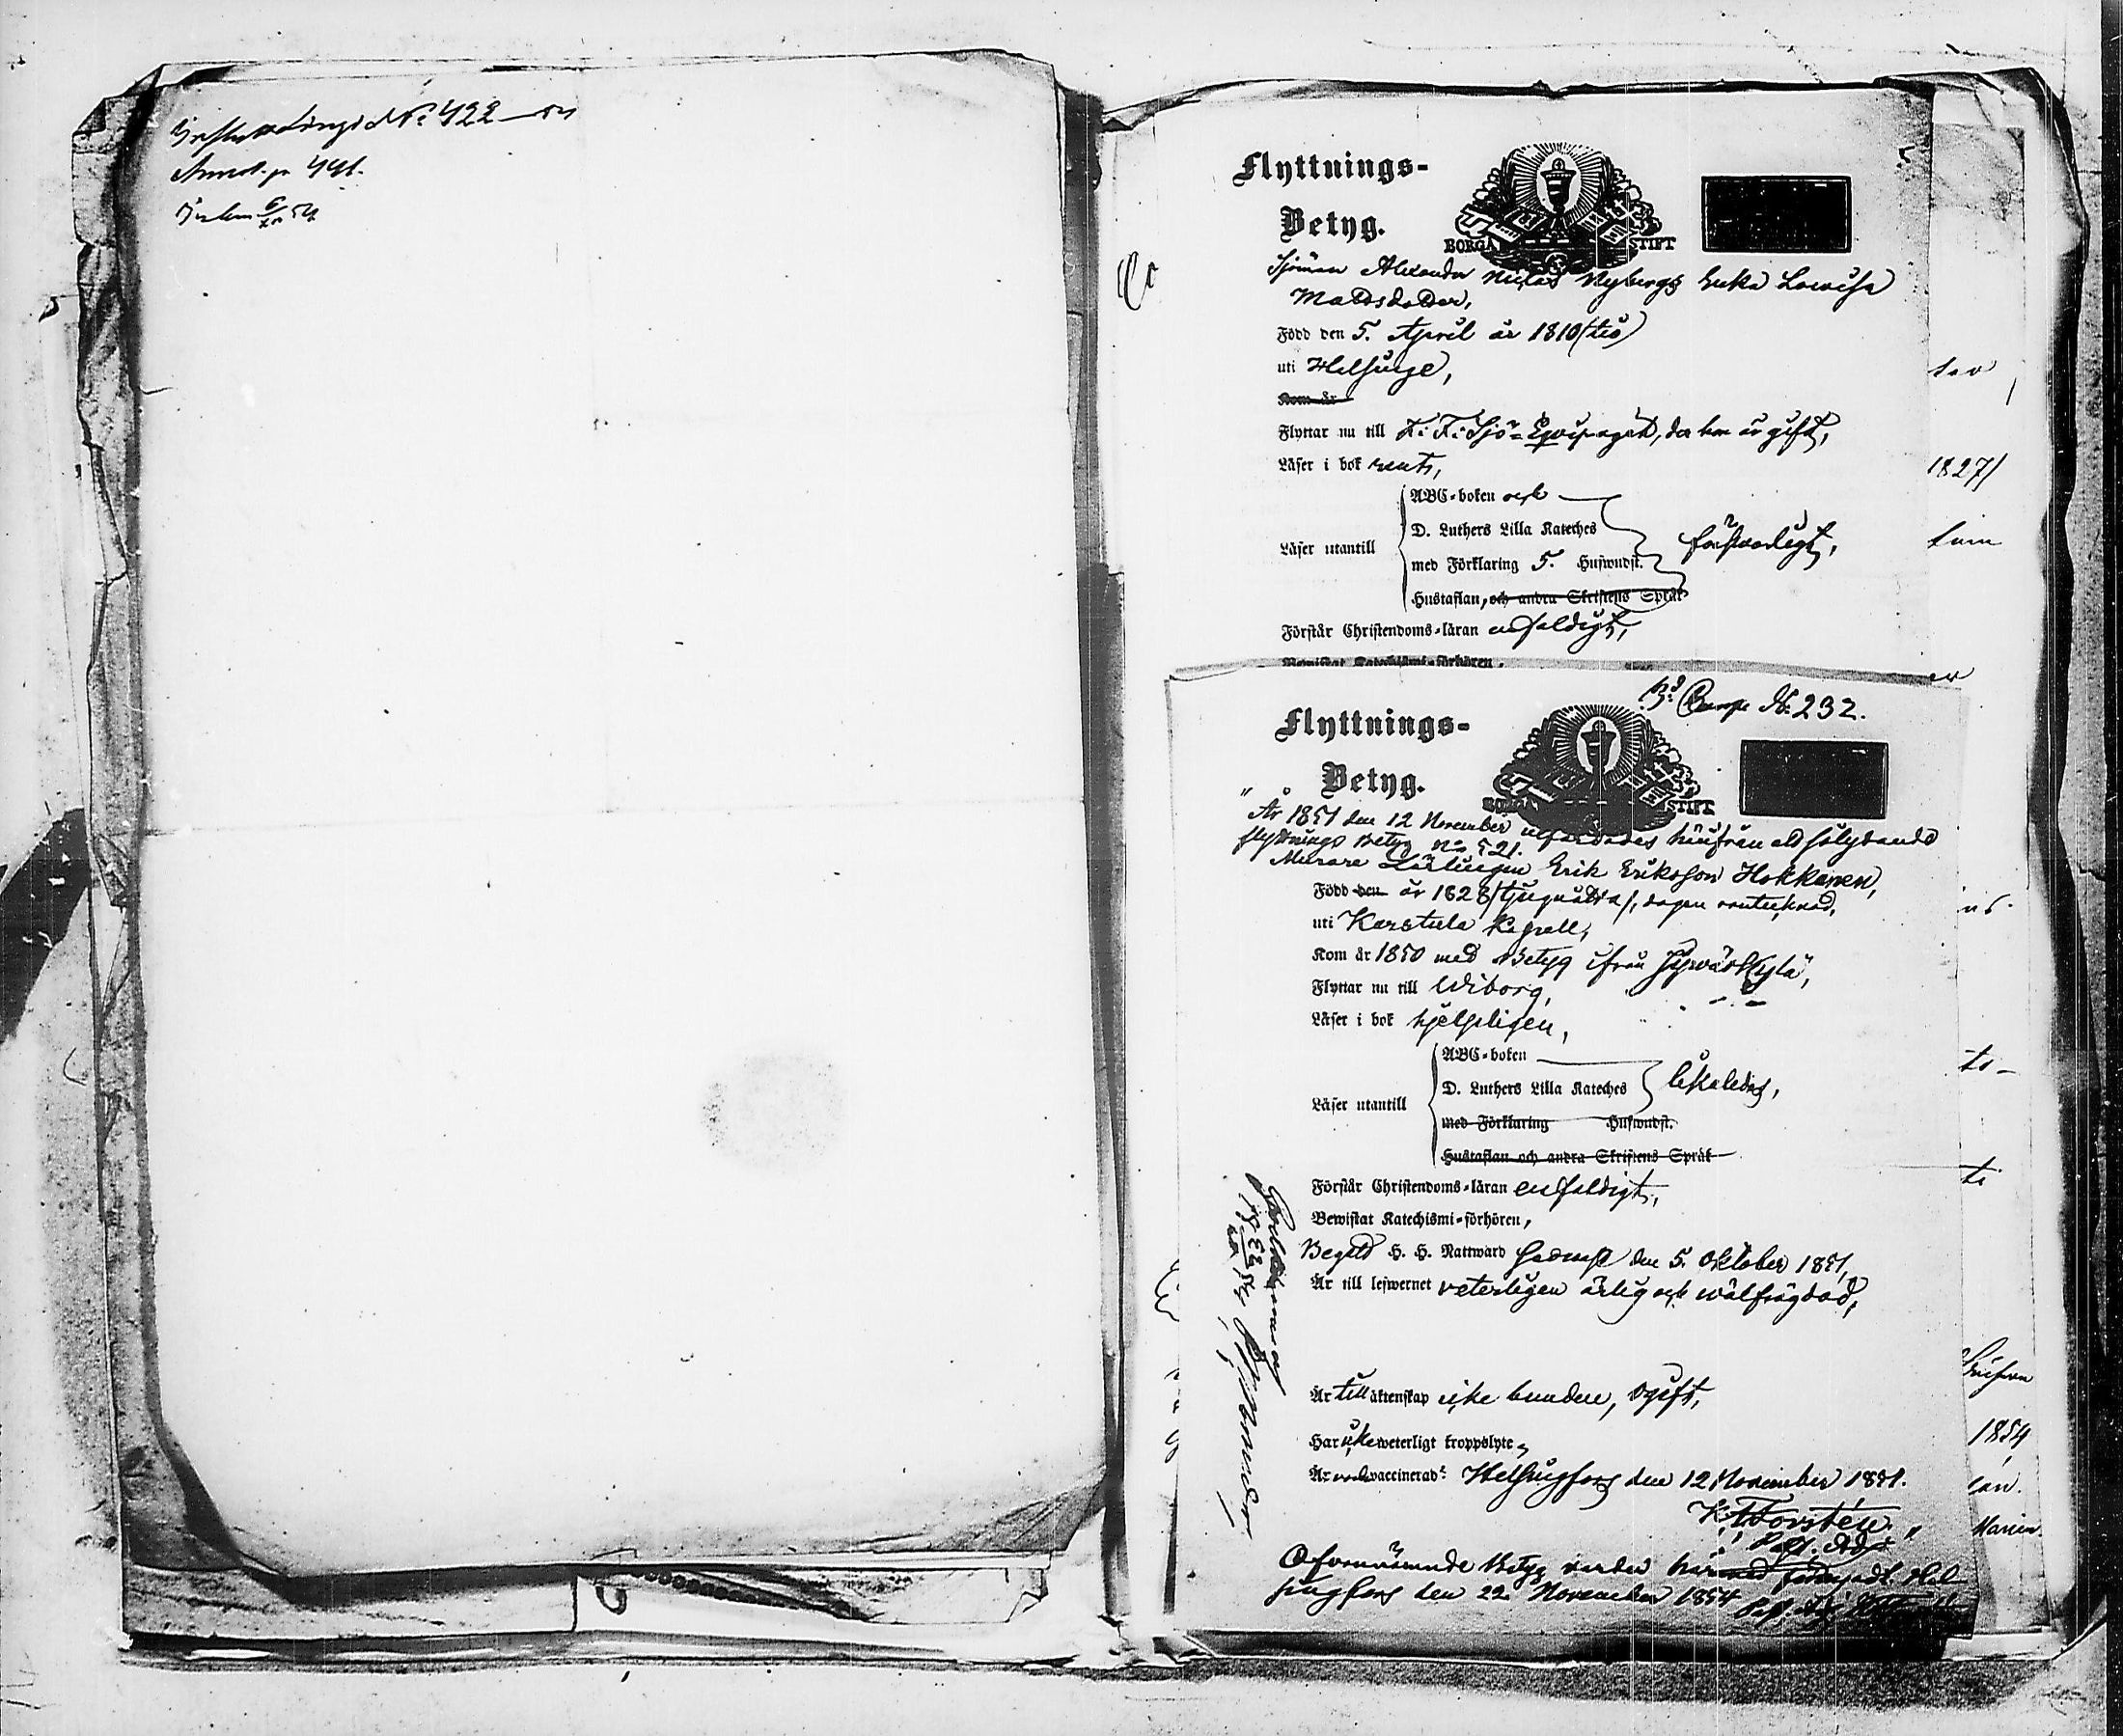 No 422
Annot. p. 491.
Flyttnings-
Betyg.
BORGÅ STIFT
Sjöman Alexander Niclas Nybergs Enka Lovisa
Mattsdotter,
Född den 5. April år 1810 (tio)
uti Helsinge,
Kom år
Flyttar nu till F: F: Sjö-Equipaget, der hon är gift,
Läser i bok rent,
Läser utantill
ABC-boken och
D. Luthers Lilla Kateches
med Förklaring 5. Hufwudst.
Hustaflan, och andra Skriftens Språk
försvarligt,
Förstår Christendoms-läran enfaldigt,
Bewistat Katechismi-förhören,
1827/
3d Comp. No 232.
Flyttnings-
Betyg.
BORGÅ STIFT
"År 1851 den 12 November utfärdades härifrån ett så lydande
flyttnings Betyg No 521.
Murare Lärlingen Erik Eriksson Hokkanen,
Född den år 1828 /tjuguåtta/, dagen oantecknad,
uti Karstula Kapell,
Kom år 1850 med Betyg ifrån Jyväskylä,
Flyttar nu till Wiborg,
Läser i bok hjelpligen,
Läser utantill
ABC-boken
D. Luthers Lilla Kateches
med Förklaring Hufwudst.
Hustaflan och andra Skriftens Språk
likaledes,
Förstår Christendoms-läran enfaldigt,
Bewistat Katechismi-förhören,
Begått H. H. Nattward sednast den 5. Oktober 1851,
Är till lefwernet veterligen ärlig och wälfrägdad,
Är till äktenskap icke bunden, ogift,
Har icke weterligt kroppslyte,
Är vaccinerad: Helsingfors den 12 November 1851.
K. F. Forstén."
Ofvannämnde Betyg varder härmed förnyadt. Hel-
singfors den 22 November 1854
1854